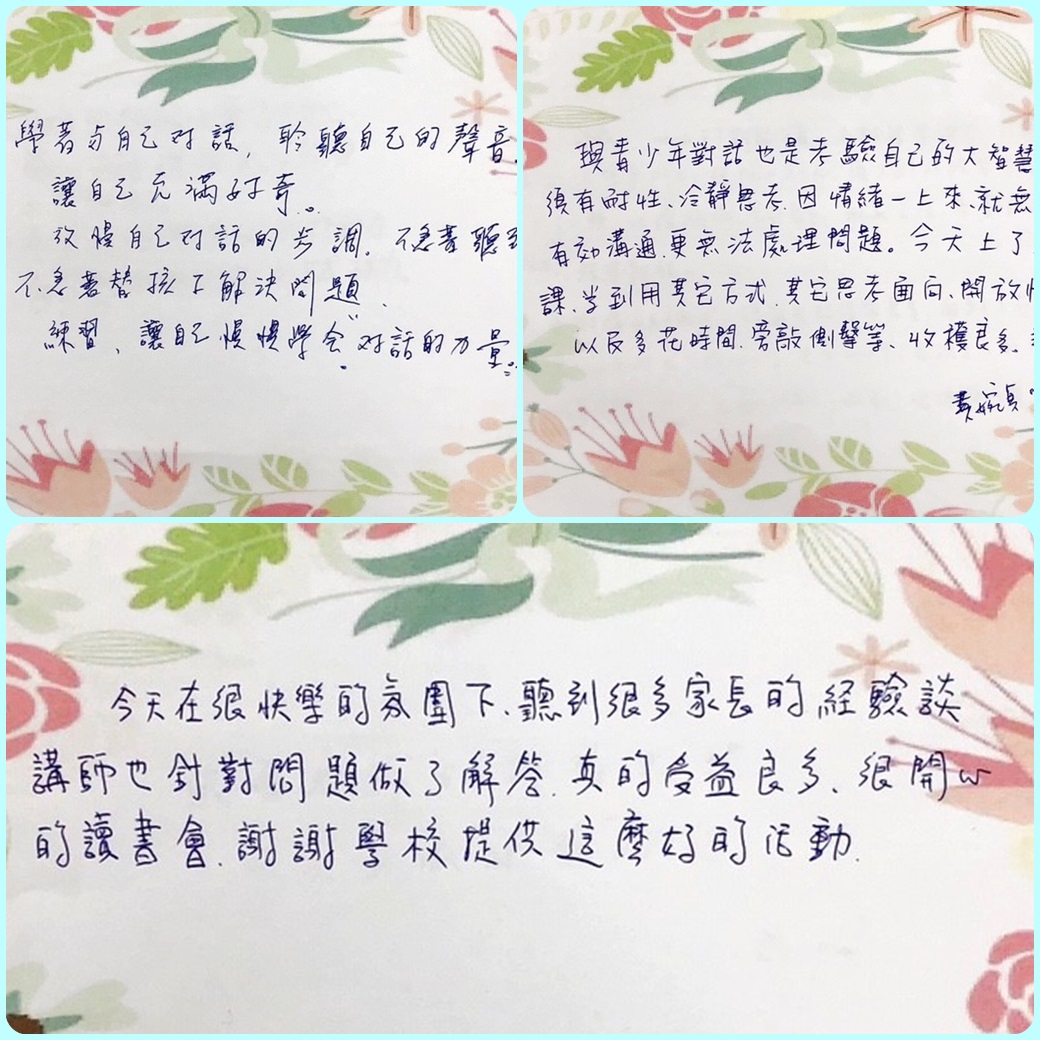 學著与自己对話，聆聽自己的聲音.
讓自己充滿好奇。
放慢自己对話的步調. 不急著聽
不急著替孩子解決問題.
練習、讓自己慢慢學会对話的力量.
與青少年對話也是考驗自己的大智慧
須有耐性、冷靜思考.因情緒一上來、就無
有效溝通.更無法處理問題。今天上了
課.学到用其它方式.其它思考面向、開放
以及多花時間.旁敲側擊等、收穫良多.
黃婉貞
今天在很快樂的氛圍下、聽到很多家長的経驗談
講師也針對問題做了解答.真的受益良多、很開心
的讀書會.謝謝學校提供這麼好的活動.